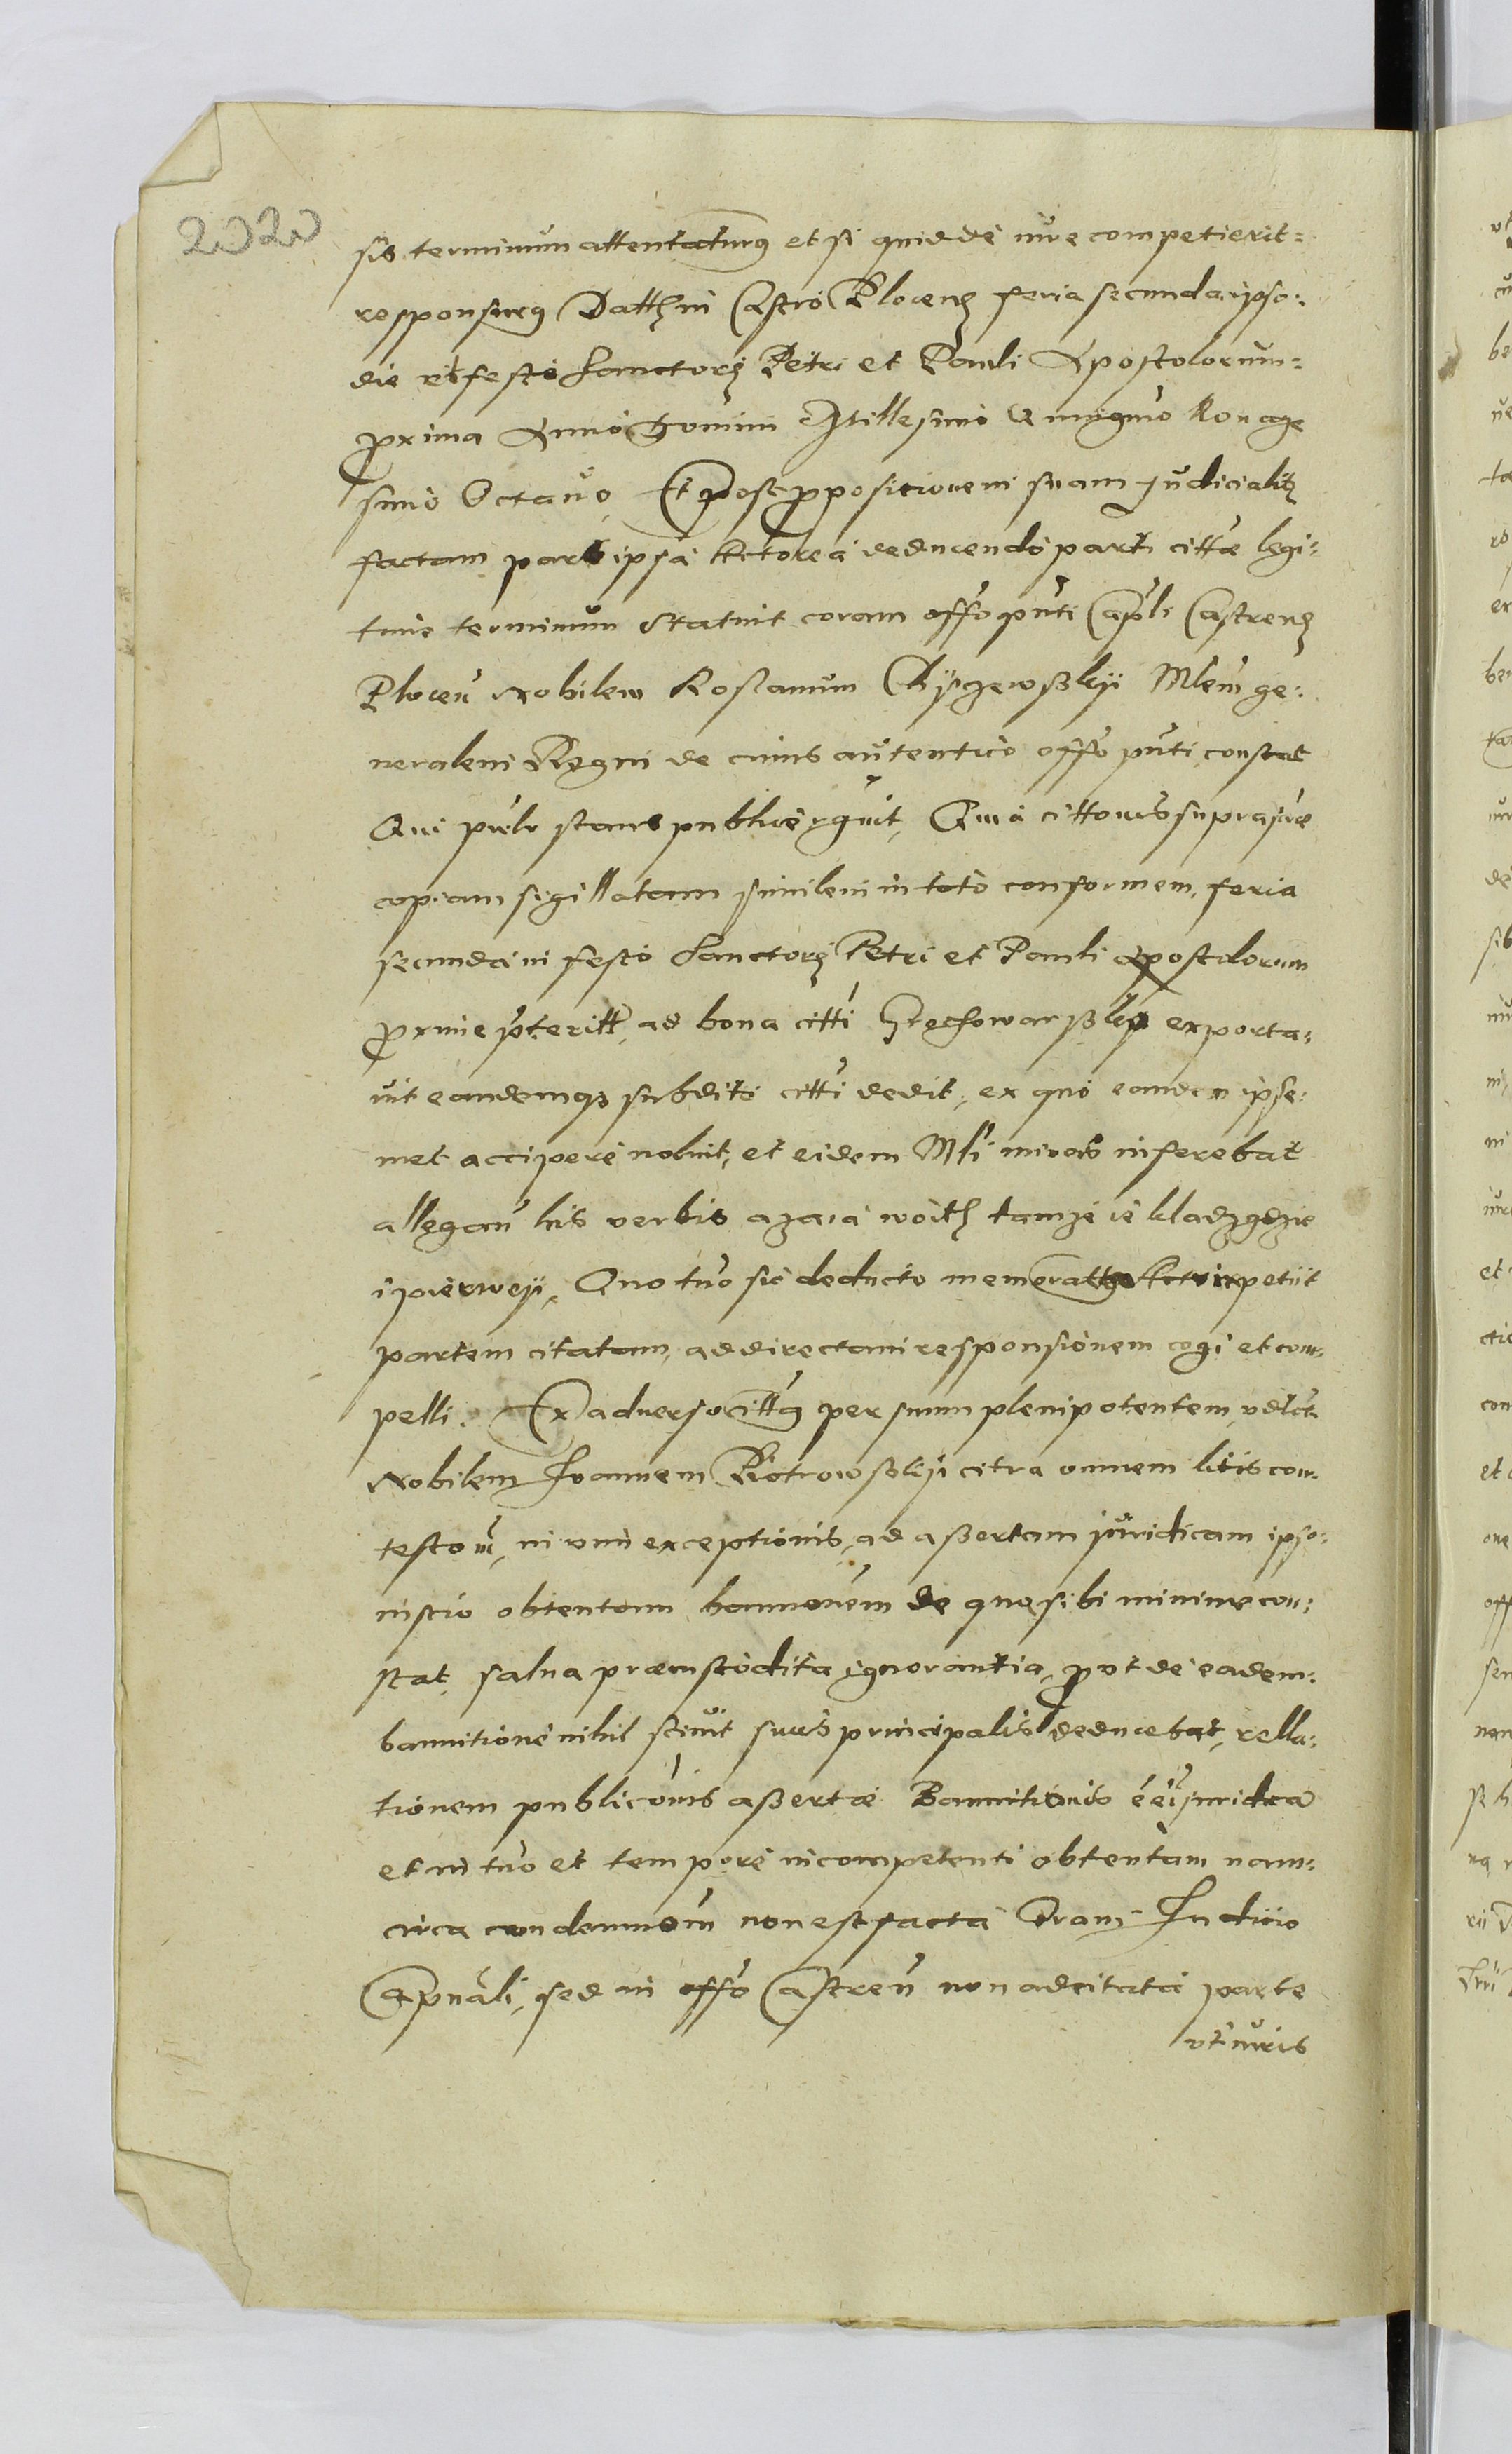 2020
sis terminum attentaturus et si quidde iure competierit=
responsurus Datth in Castro Plocens feria secunda ipso:
die et festi Sanctorum Petri et Pauli Apostolorum=
proxima Anno Domini Millesimo Quingmo Nonage
simo Octauo, Et post propositionem suam Judicialiter
factam pars ipsa Actorea deducendo parti cittae legi:
time terminum statuit coram offo pnti Capli Castrens
Plocen Nobilem Rostanum Mlem ge:
neralem Regni de cuius autentico offo pnti constat
Qui palr stans publice rgnit, Quia cittonis suprascrae
copiam sigillatam similem in toto conformem, feria
secunda in festo Sanctorum Petri et Pauli Apostolorum
proxime pteritt, ad bona citti exporta:
uit eandemque subdito citti dedit, ex quo eandem ipse:
met accipere noluit, et eidem Mli minas inferebat
allegan his verbis azaia woith tamze ie kladzgdzie
i pierweÿ, Quo tno sic deducto memoratus Actor petiit
partem citatam, ad directam responsionem cogi et com:
pelli. Ex aduerso cittus per suum plenipotentem, vdlct
Nobilem Joannem Piotrowskÿ citra omnem litis con:
testom, in vim exceptionis, ad assertam juridicam ipso:
inscio obtentam bannonem de qua sibi minime con:
stat, salua praemsiodita ignorantia, prout de eadem:
bannitione nihil sciuit suus principalis deducebat, rella:
tionem publiconis assertae Bannitionis eei juridica
et in tno et tempore incompetenti obtentam nam:
circa condemnom non est facta coram Judicio
Capnali, sed in offo Castren non adcitata parte
vt iuris